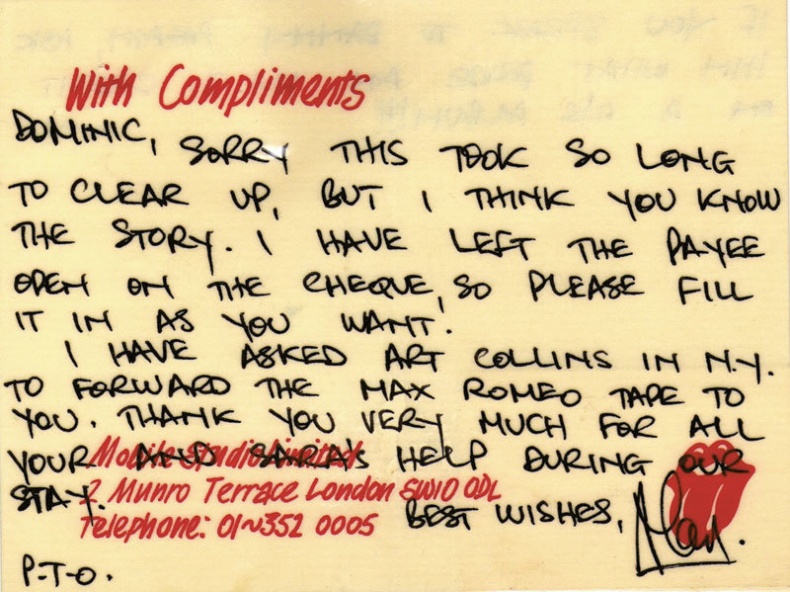 With Compliments
DOMINIC,
SORRY THIS TOOK SO LONG
TO CLEAR UP, BUT I THINK YOU KNOW
THE STORY. I HAVE LEFT THE PAYEE
OPEN ON THE CHEQUE, SO PLEASE FILL
IT IN AS YOU WANT.
I HAVE ASKED ART COLLINS IN N.Y.
TO FORWARD THE MAX ROMEO TAPE TO
YOU. THANK YOU VERY MUCH FOR ALL
YOUR AND SARA'S HELP DURING OUR
Mobile Studio Limited
STAY.
2 Munro Terrace London SW10 0DL
Telephone: 01~352 0005
BEST WISHES,
P.T.O.